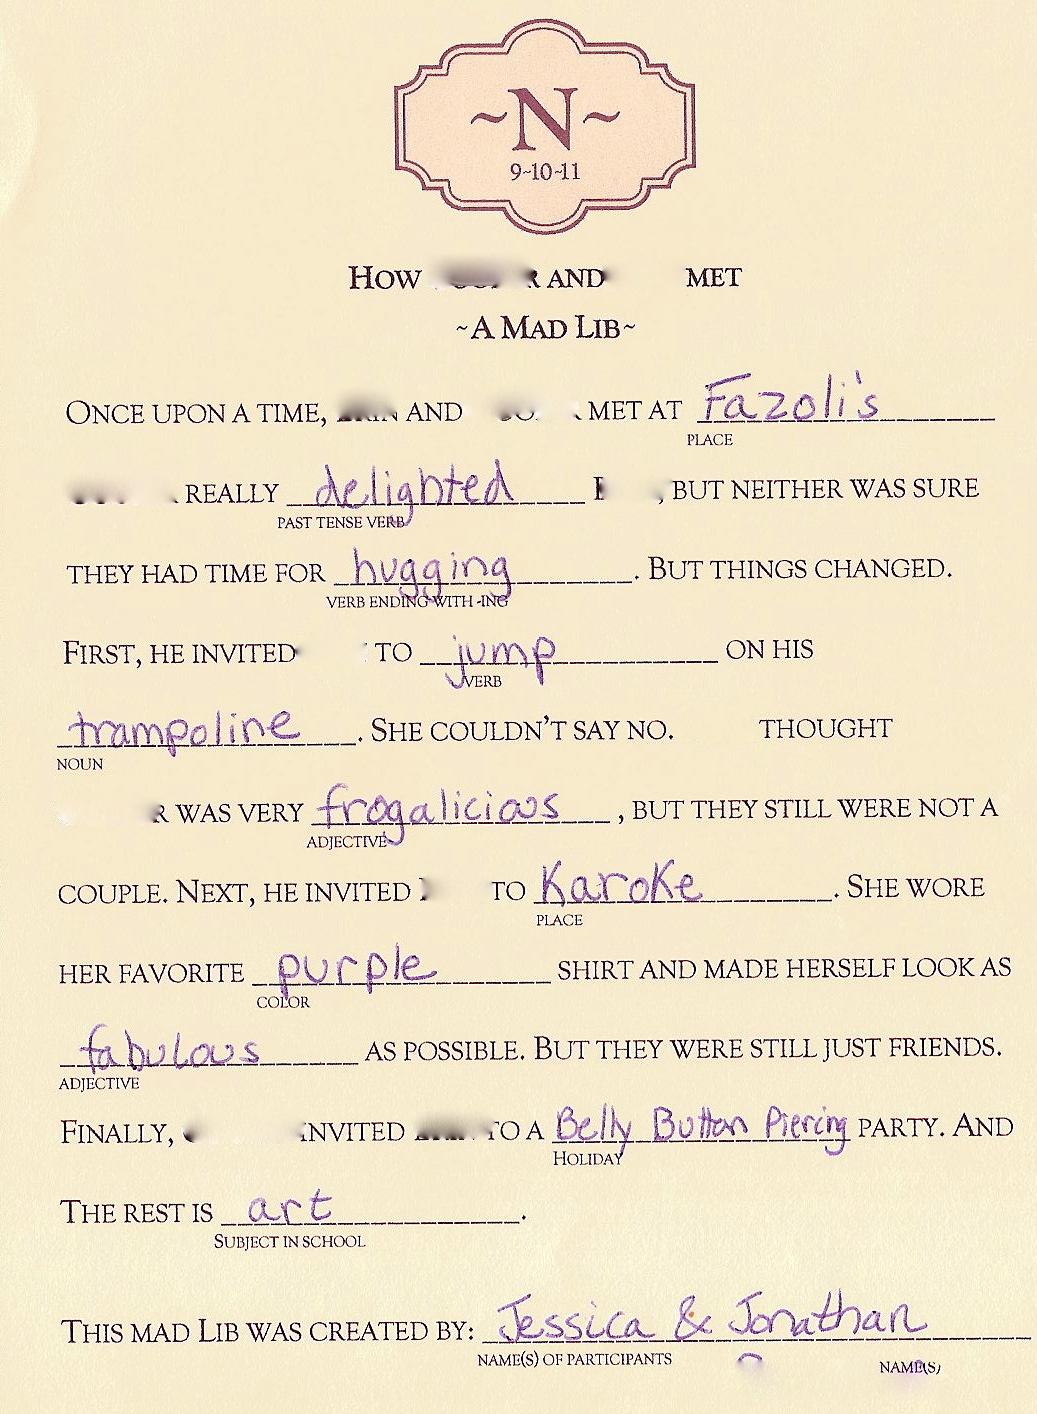 ~N~
9-10-11
HOW AND MET
~A MAD LIB~
ONCE UPON A TIME, AND MET AT Fazoli's
PLACE
REALLY delighted , BUT NEITHER WAS SURE
PAST TENSE VERB
THEY HAD TIME FOR hugging. BUT THINGS CHANGED.
VERB ENDING WITH -ING
FIRST, HE INVITED TO jump ON HIS
VERB
trampoline. SHE COULDN'T SAY NO. THOUGHT
NOUN
WAS VERY frogalicious, BUT THEY STILL WERE NOT A
ADJECTIVE
COUPLE. NEXT, HE INVITED TO Karoke. SHE WORE
PLACE
HER FAVORITE purple SHIRT AND MADE HERSELF LOOK AS
COLOR
fabulous AS POSSIBLE. BUT THEY WERE STILL JUST FRIENDS.
ADJECTIVE
FINALLY, INVITED TO A Belly Button Piercing PARTY. AND
HOLIDAY
THE REST IS art.
SUBJECT IN SCHOOL
THIS MAD LIB WAS CREATED BY: Jessica & Jonathan
NAME(S) OF PARTICIPANTS NAME(S)